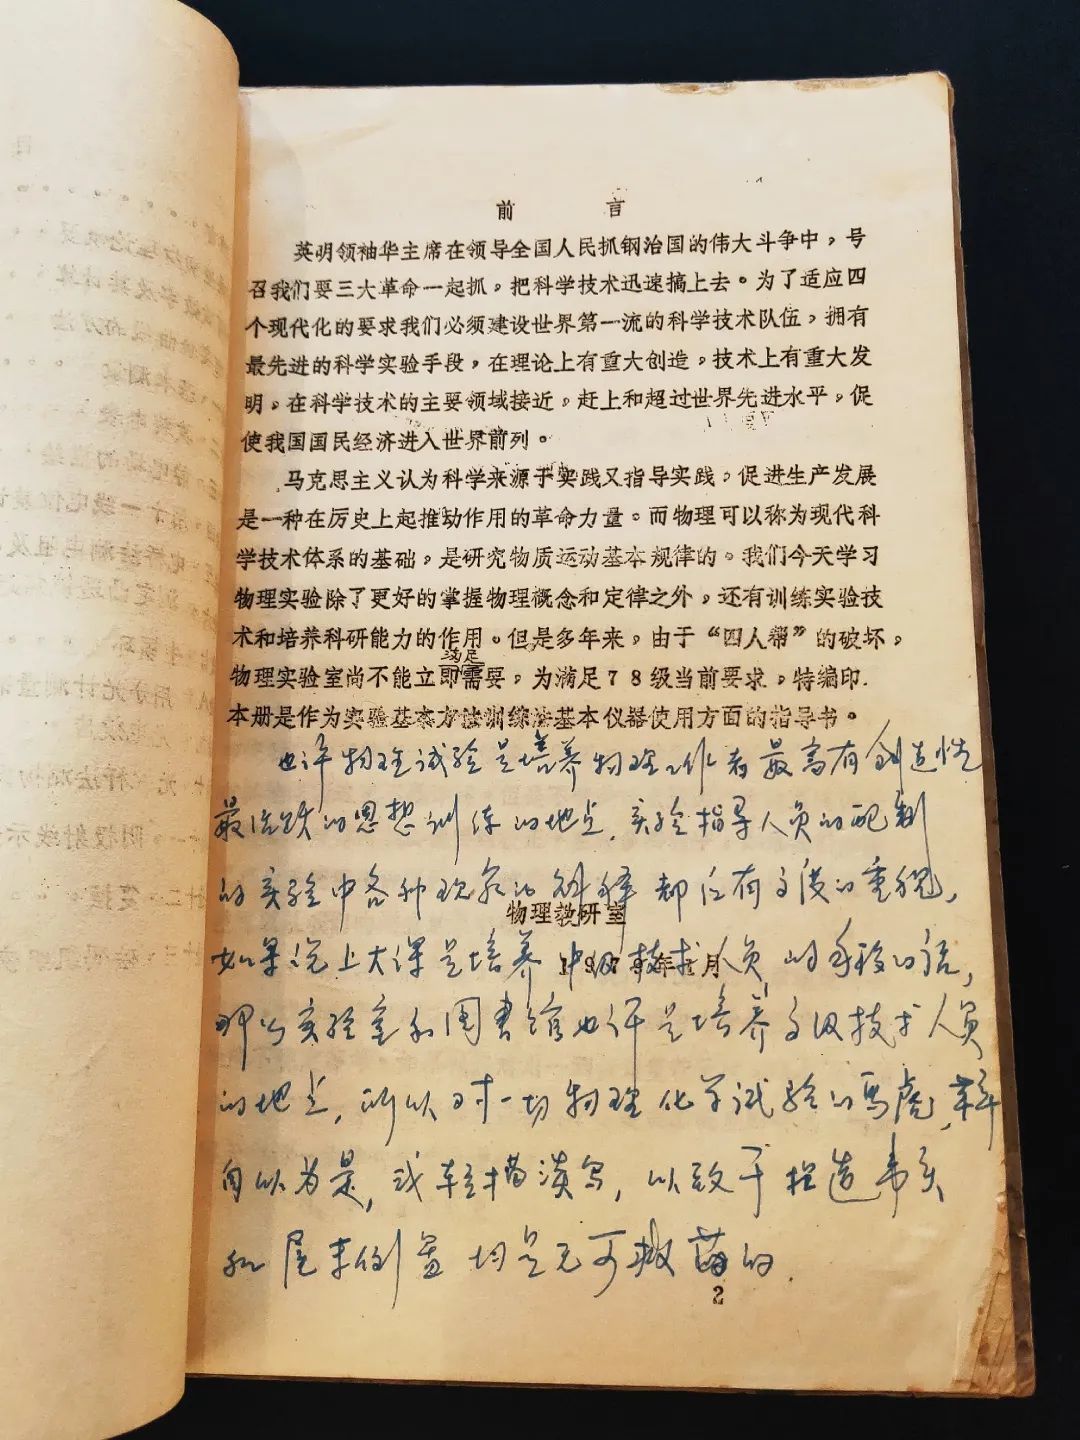 前言
英明领袖华主席在领导全国人民抓钢治国的伟大斗争中，号
召我们要三大革命一起抓，把科学技术迅速搞上去。为了适应四
个现代化的要求我们必须建设世界第一流的科学技术队伍，拥有
最先进的科学实验手段，在理论上有重大创造，技术上有重大发
明，在科学技术的主要领域接近，赶上和超过世界先进水平，促
使我国国民经济进入世界前列。
马克思主义认为科学来源于实践又指导实践，促进生产发展
是一种在历史上起推动作用的革命力量。而物理可以称为现代科
学技术体系的基础，是研究物质运动基本规律的。我们今天学习
物理实验除了更好的掌握物理概念和定律之外，还有训练实验技
术和培养科研能力的作用。但是多年来，由于“四人帮”的破坏，
满足
物理实验室尚不能立即需要，为满足78级当前要求，特编印
本册是作为实验基本方法训练法基本仪器使用方面的指导书。
也许物理试验是培养物理工作者最富有创造性
最活跃的思想训练的地点，实验指导人员的配制
的实验中各种现象的解释都应有高度的重视，
物理教研室
如果说上大课是培养中级技术人员的手段的话，
那么实验室和图書馆也许是培养高级技术人员
的地点，所以对一切物理化学试验的馬虎，
自以为是，或轻描淡写，以致于捏造
和尾末倒置均是无可救药的.
2